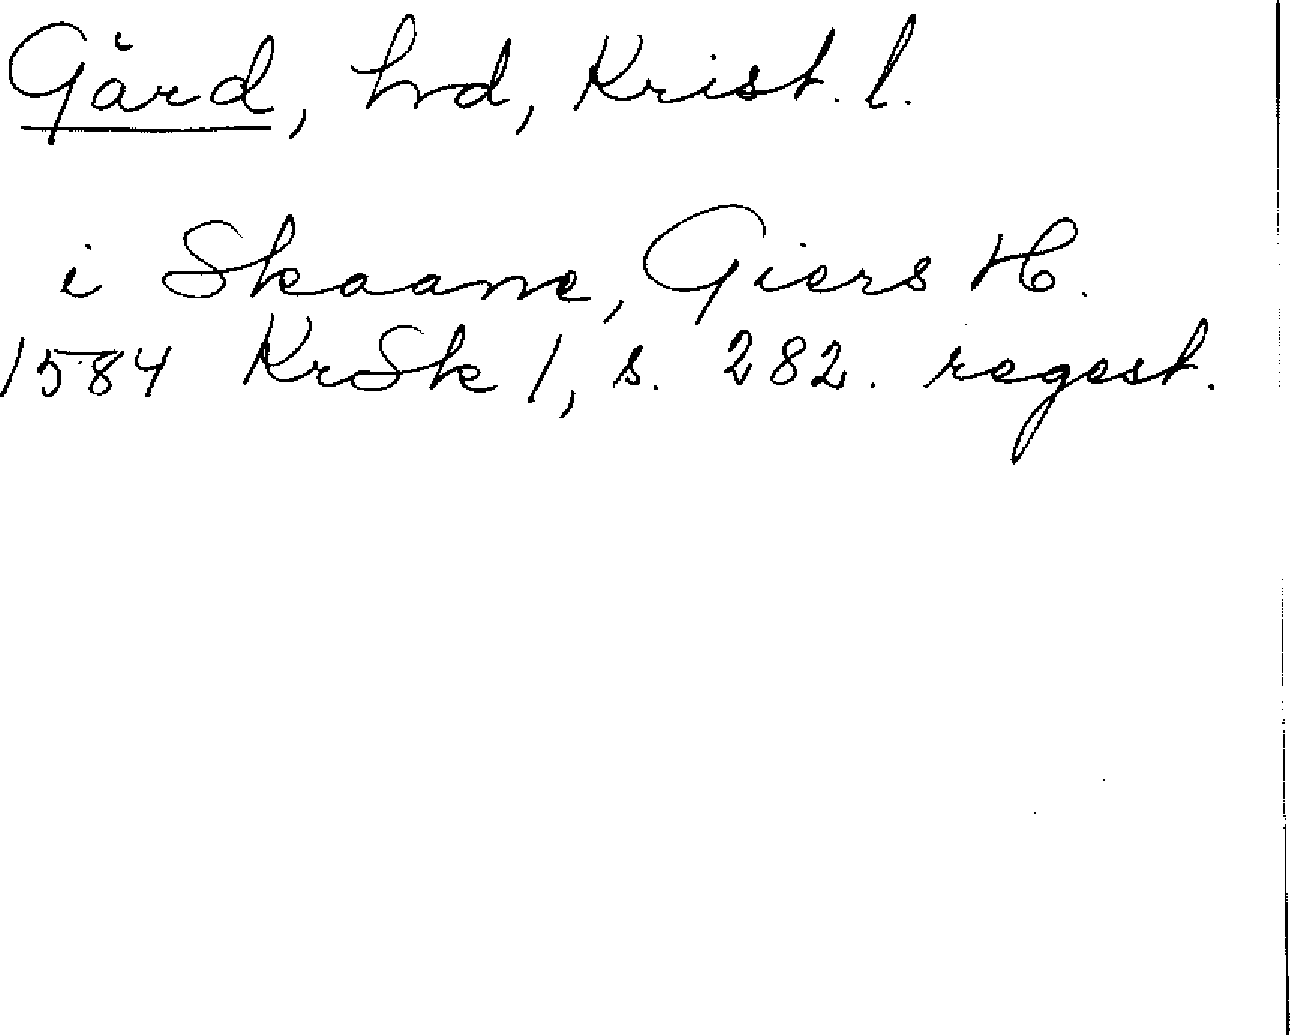 Gärd, hrd, Krist. l.
i Skaane, Giers H.
1584 KrSk 1, s. 282. regest.